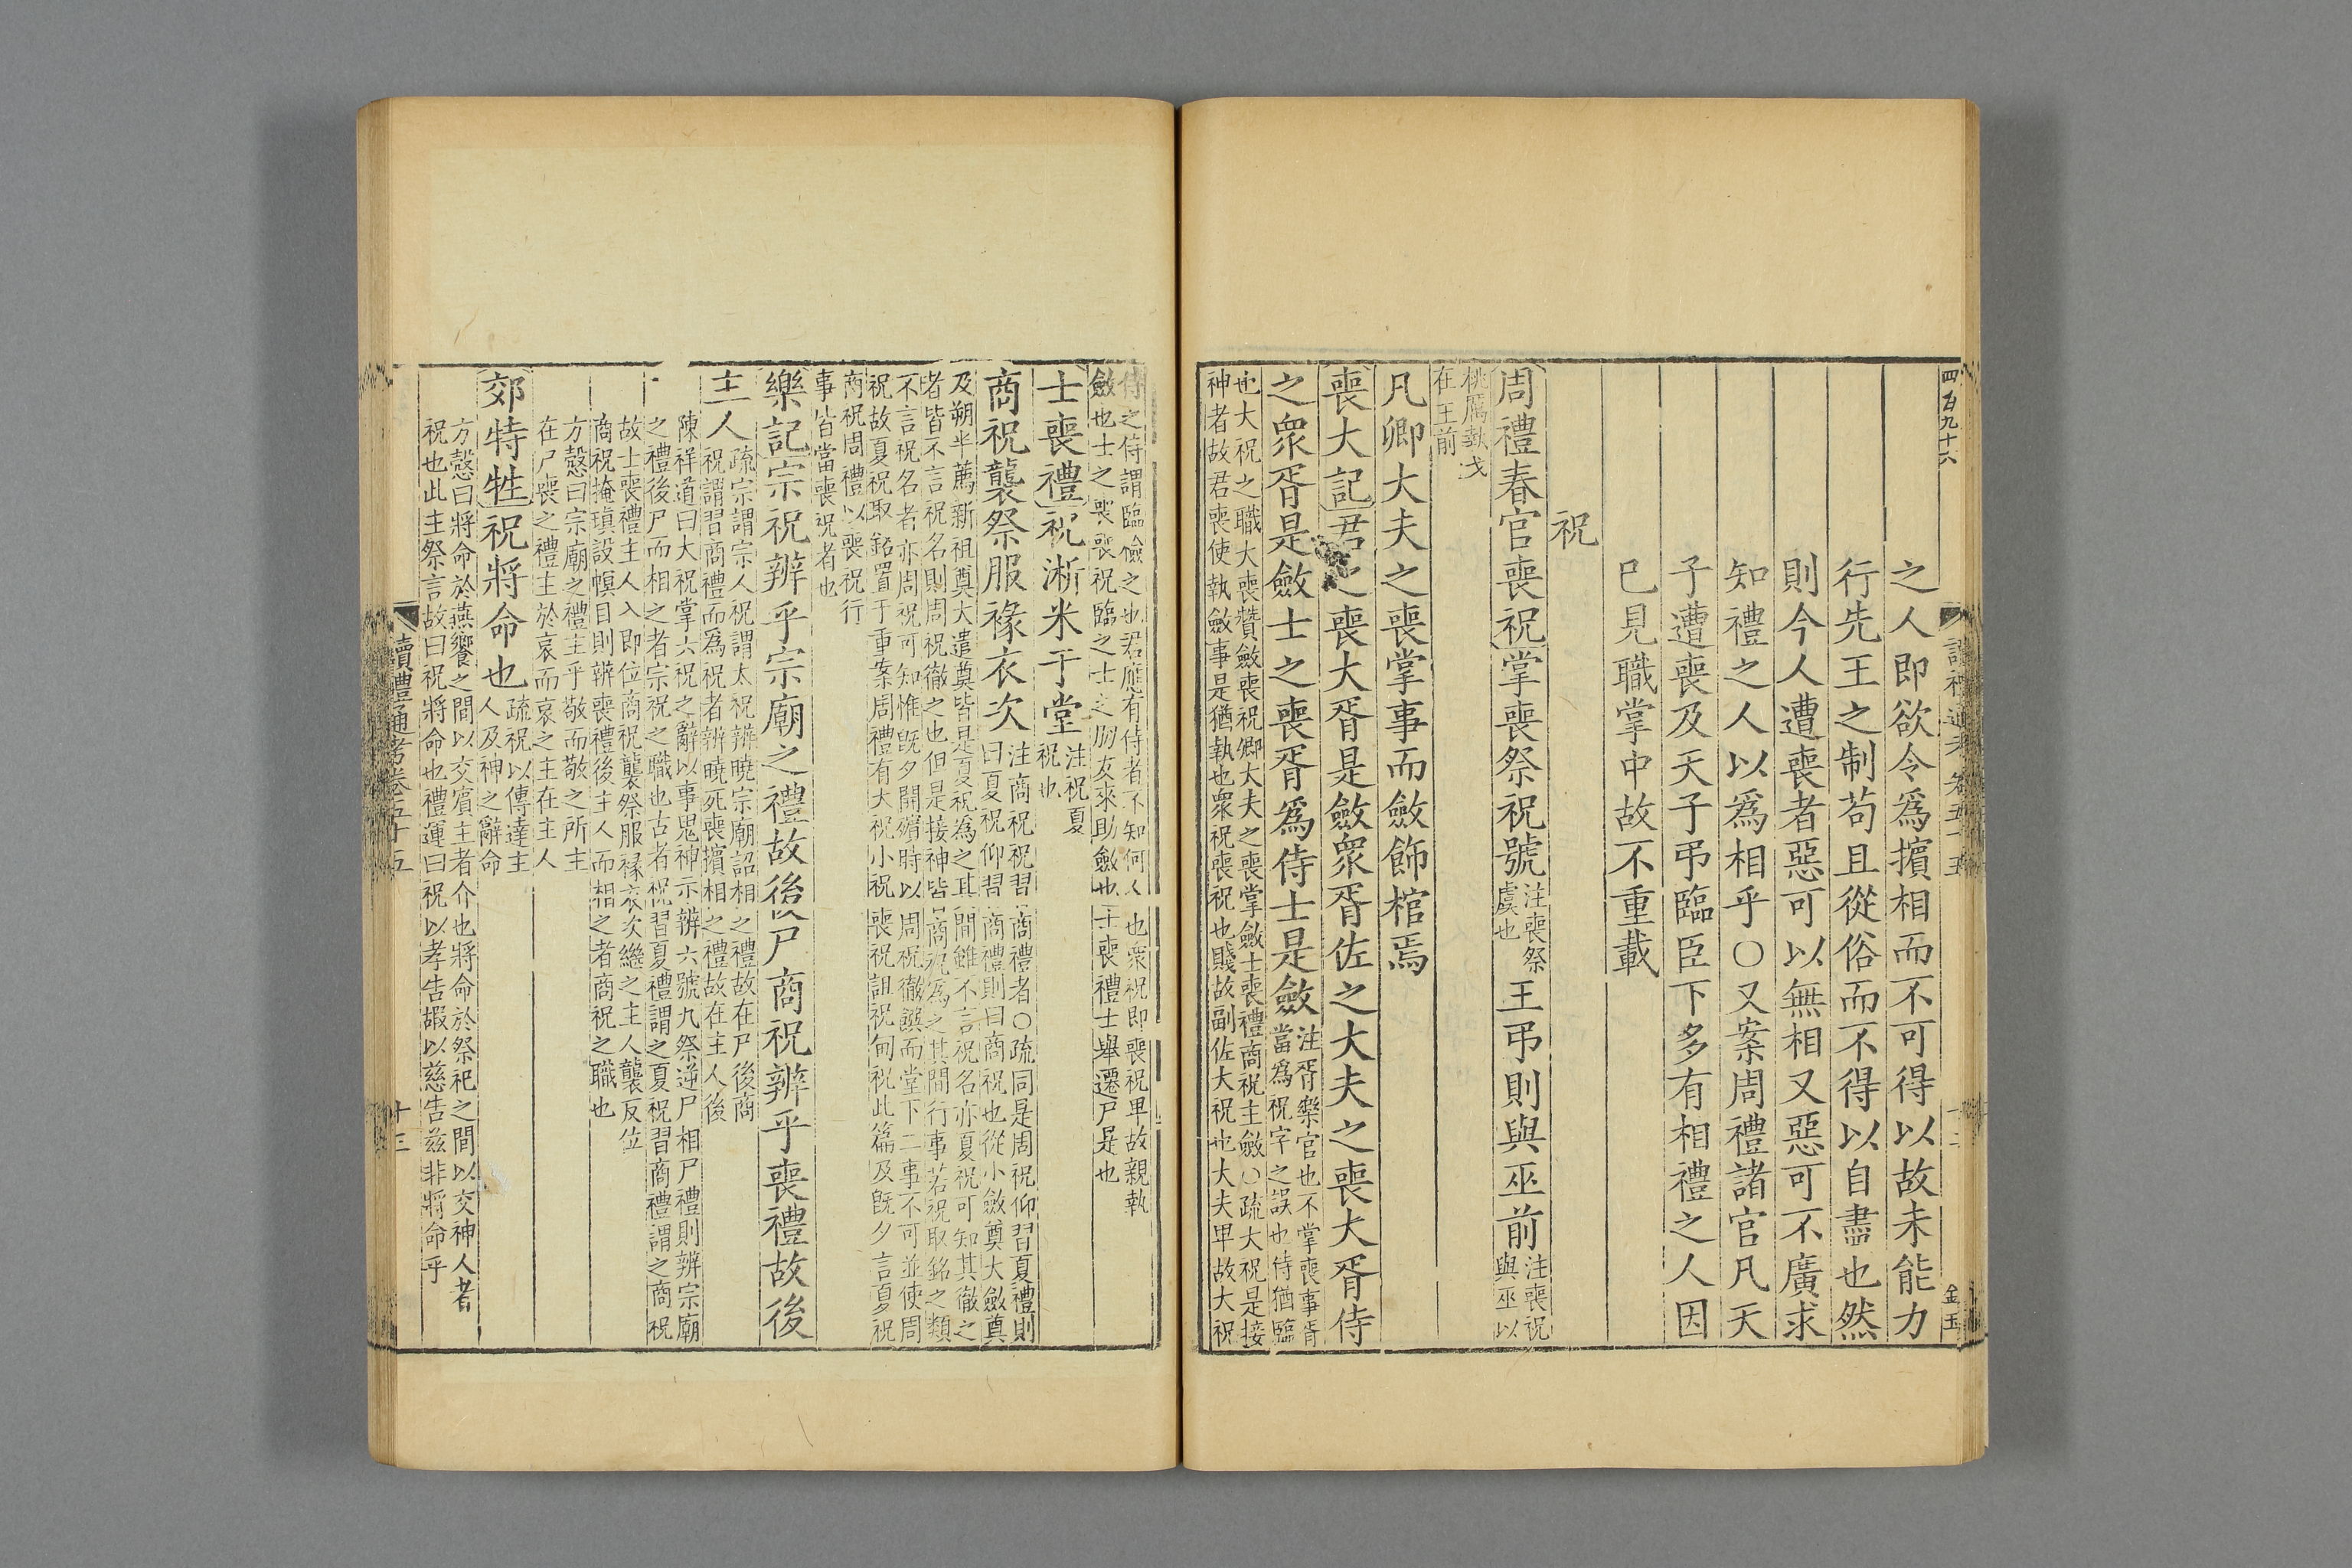 四百九十六
讀禮通考卷五十五
十二
金玉
之人即欲令爲擯相而不可得以故未能力
行先王之制苟且從俗而不得以自盡也然
則今人遭喪者惡可以無相又惡可不廣求
知禮之人以爲相乎○又案周禮諸官凡天
子遭喪及天子弔臨臣下多有相禮之人因
已見職掌中故不重載
祝
周禮春官喪祝掌喪祭祝號
注喪祭
虞也
王弔則與巫前
注喪祝
與巫以
桃厲執戈
在王前
凡卿大夫之喪掌事而斂飾棺焉
喪大記君之喪大胥是斂衆胥佐之大夫之喪大胥侍
之衆胥是斂士之喪胥爲侍士是斂
注胥樂官也不掌喪事胥
當爲祝字之誤也侍猶臨
也大祝之職大喪贊斂喪祝卿大夫之喪掌斂士喪禮商祝主斂○疏大祝是接
神者故君喪使執斂事是猶執也衆祝喪祝也賤故副佐大祝也大夫卑故大祝
侍之侍謂臨儉之也君應有侍者不知何人也衆祝即喪祝卑故親執
斂也士之喪喪祝臨之士之朋友來助斂也士喪禮士舉遷尸是也
士喪禮祝淅米于堂
注祝夏
祝也
商祝襲祭服褖衣次
注商祝祝習商禮者○疏同是周祝仰習夏禮則
曰夏祝仰習商禮則曰商祝也從小斂奠大斂奠
及朔半薦新祖奠大遣奠皆是夏祝為之其間雖不言祝名亦夏祝可知其徹之
者皆不言祝名則周祝徹之也但是接神皆商祝為之其間行事若祝取銘之類
不言祝名者亦周祝可知惟既夕開殯時以周祝徹饌而堂下二事不可並使周
祝故夏祝取銘置于重案周禮有大祝小祝喪祝詛祝甸祝此篇及既夕言夏祝
商祝周禮以喪祝行
事皆當喪祝者也
樂記宗祝辨乎宗廟之禮故後尸商祝辨乎喪禮故後
主人
疏宗謂宗人祝謂太祝辨曉宗廟詔相之禮故在尸後商
祝謂習商禮而爲祝者辨曉死喪擯相之禮故在主人後
陳祥道曰大祝掌六祝之辭以事鬼神示辨六號九祭逆尸相尸禮則辨宗廟
之禮後尸而相之者宗祝之職也古者祝習夏禮謂之夏祝習商禮謂之商祝
故士喪禮主人入即位商祝襲祭服褖衣次繼之主人襲反位
商祝掩瑱設幎目則辨喪禮後主人而相之者商祝之職也
方慤曰宗廟之禮主乎敬而敬之所主
在尸喪之禮主於哀而哀之主在主人
郊特牲祝將命也
疏祝以傳達主
人及神之辭命
方慤曰將命於燕饗之間以交賓主者介也將命於祭祀之間以交神人者
祝也此主祭言故曰祝將命也禮運曰祝以孝告嘏以慈告茲非將命乎
讀禮通考卷五十五
十三